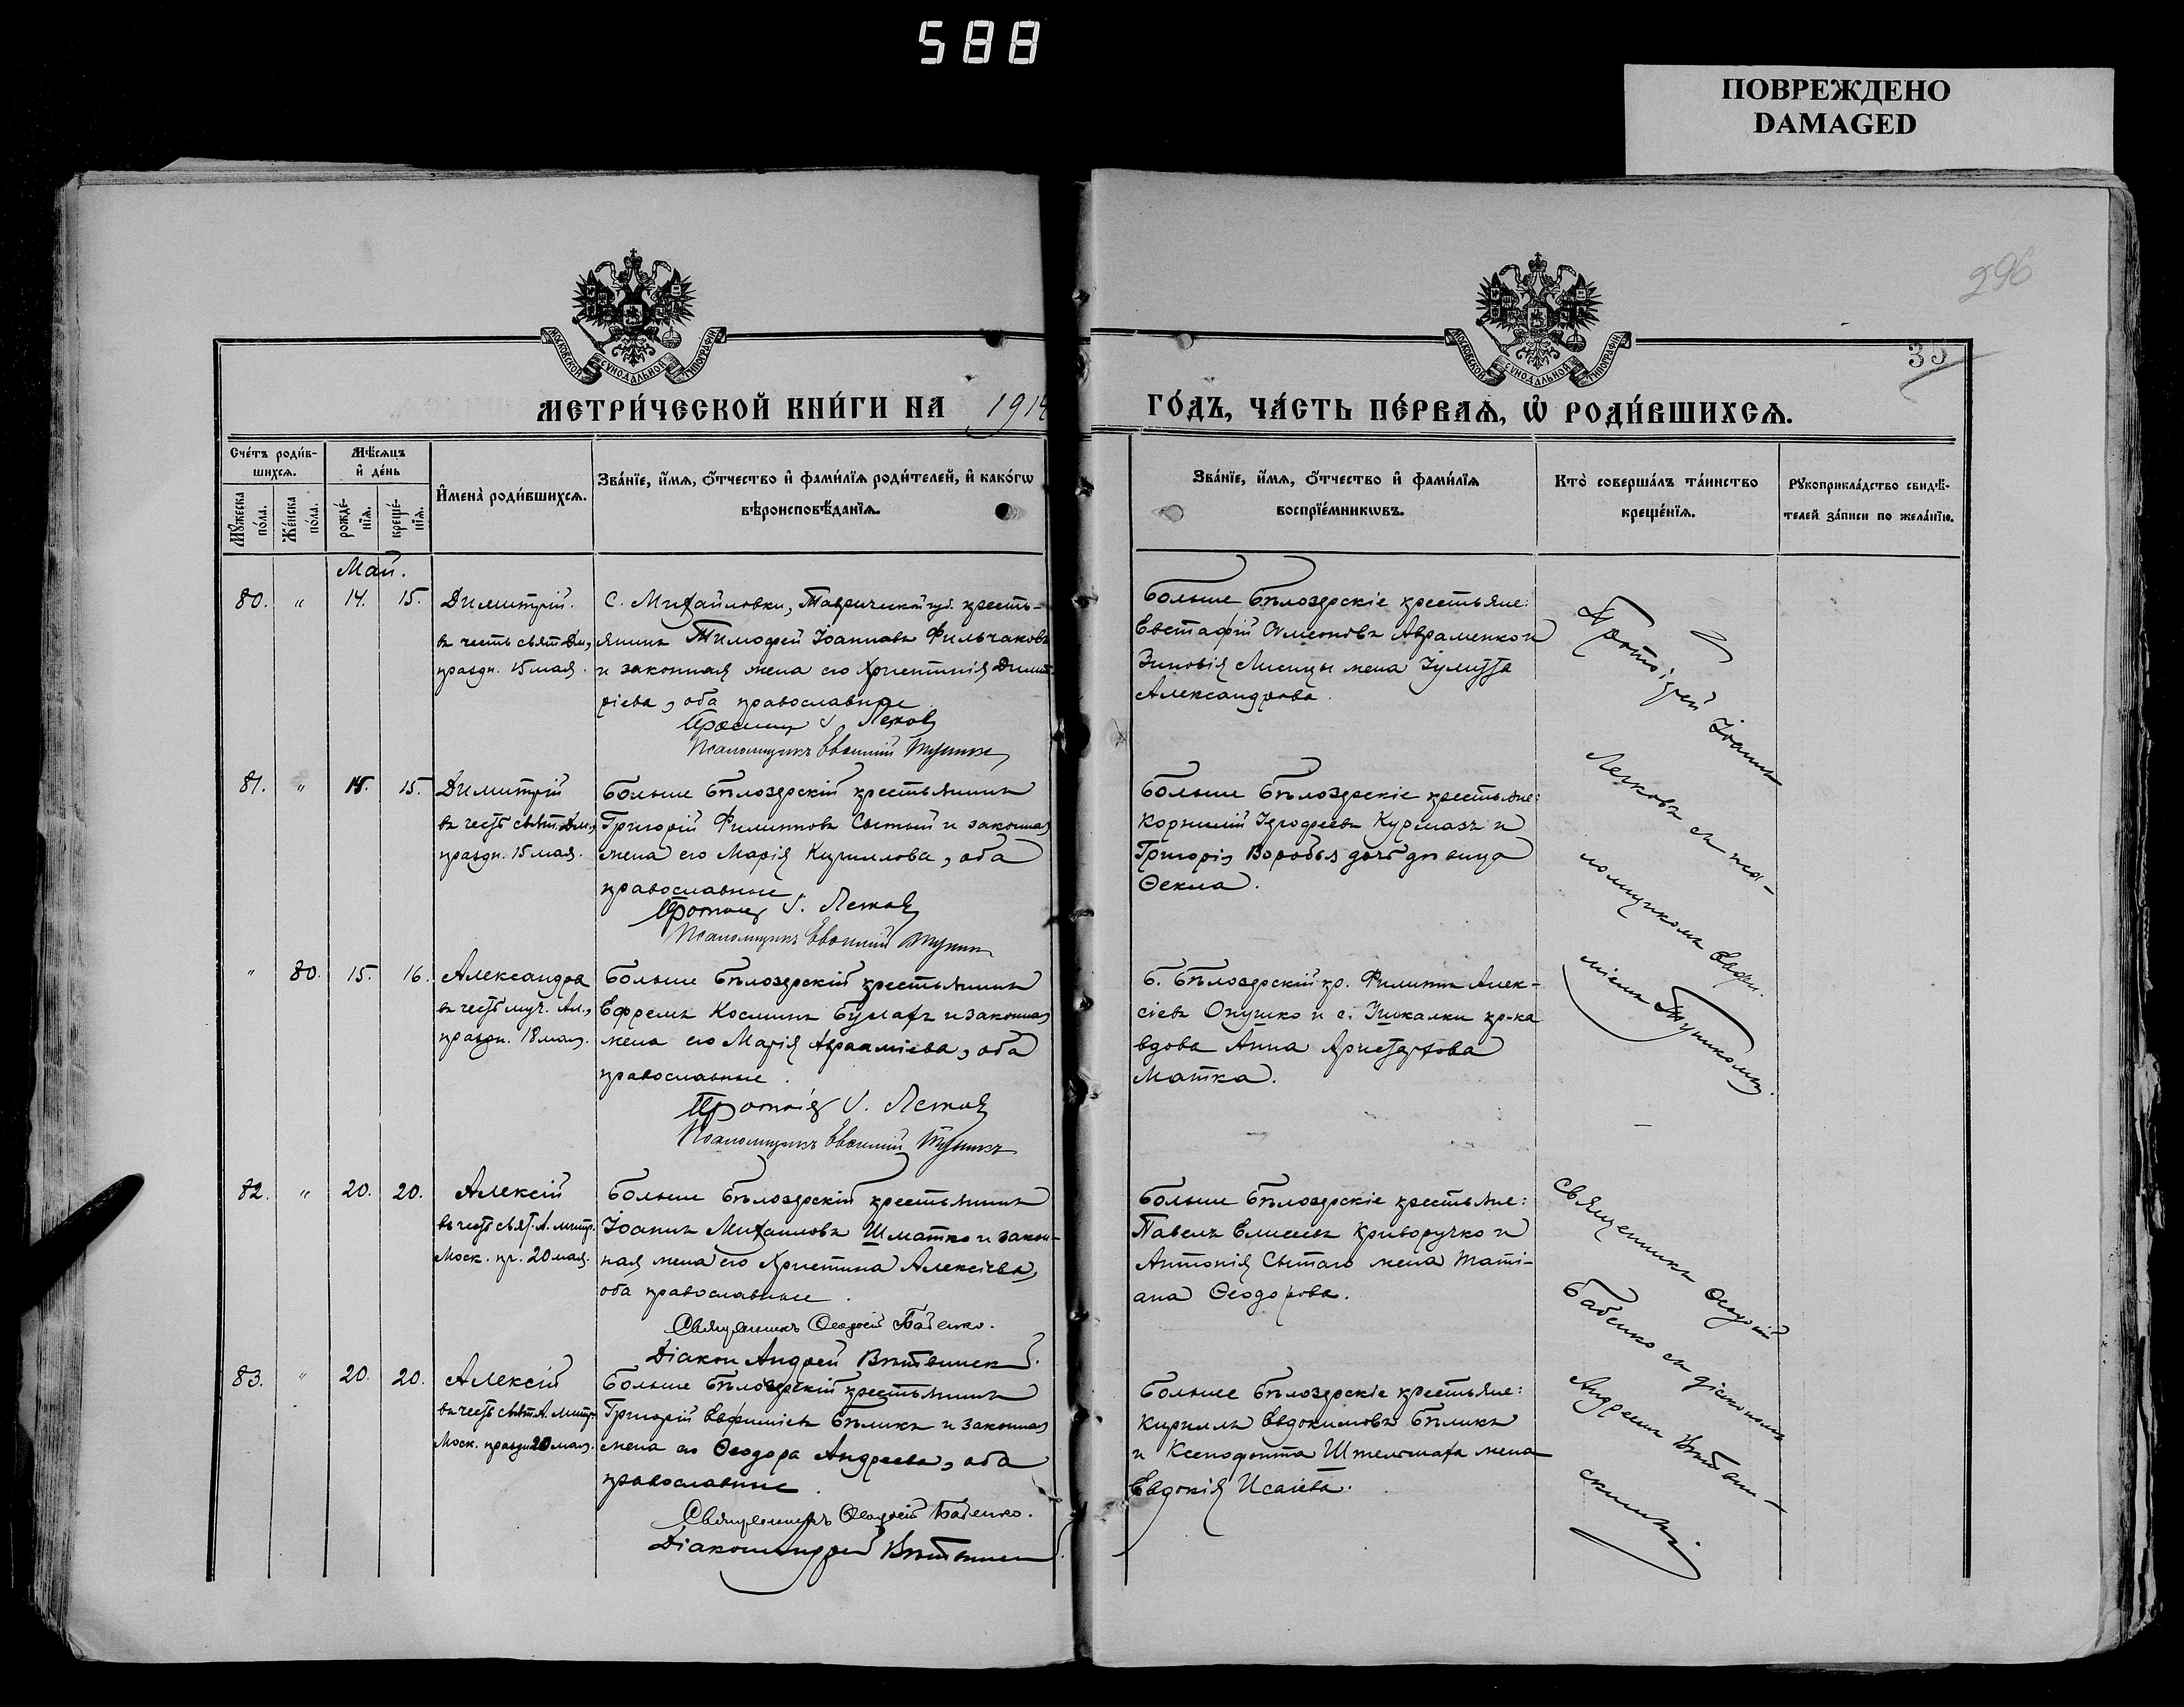 588
ПОВРЕЖДЕНО
DAMAGED
296
35
МОСКОВСКОЙ СѴНОДАЛЬНОЙ ТИПОГРАФІИ
МОСКОВСКОЙ СѴНОДАЛЬНОЙ ТИПОГРАФІИ
МЕТРИ́ЧЕСКОЙ КНИ́ГИ НА 1914
ГО́ДЪ, ЧА́СТЬ ПЕ́РВАѦ, Ѡ҆ РОДИ́ВШИХСѦ.
Сче́тъ роди́в-
шихсѧ.
Мѣ́сѧцъ
и҆ де́нь
Мꙋ́жеска
по́ла.
Же́нска
по́ла.
рожде́-
нїѧ.
креще́-
нїѧ.
И҆мена̀ роди́вшихсѧ.
Зва́нїе, и҆́мѧ, ѻ҆́тчество и҆ фами́лїѧ роди́телей, и҆ како́гѡ
вѣроисповѣ́данїѧ.
Зва́нїе, и҆́мѧ, ѻ҆́тчество и҆ фами́лїѧ
воспрїе́мникѡвъ.
Кто̀ соверша́лъ та́инство
креще́нїѧ.
Рꙋкоприкла́дство свидѣ́-
телей за́писи по жела́нїю.
Май.
80. " 14. 15. Димитрій.
въ честь свят. Дм.,
праздн. 15 мая.
С. Михайловки, Таврической губ. кресть-
янинъ Тимофей Іоанновъ Фильчаковъ
и законная жена его Христинія Димит-
ріева, оба православные
Протоиер І. Лежков
Псаломщикъ Евфимій
Больше Бѣлозерскіе крестьяне:
Евстафій Симеоновъ Авраменко и
Зиновія Лисицы жена Іулитта
Александрова.
81. " 14. 15. Димитрій
въ честь свят. Дм.,
праздн. 15 мая.
Больше Бѣлозерскій крестьянинъ
Григорій Филипповъ Сытый и законная
жена его Марія Кириллова, оба
православные
Протоиер І. Лежков
Псаломщикъ Евфимій
Больше Бѣлозерскіе крестьяне:
Корнилій Іерофеевъ Курмазъ и
Григорія Воробья дочь дѣвица
Ѳекла.
Протоіерей Іоаннъ
Лежковъ съ пса-
ломщикомъ Евфи-
міемъ
" 80. 15. 16. Александра
въ честь муч. Ал.,
праздн. 18 мая.
Больше Бѣлозерскій крестьянинъ
Ефремъ Косминъ Бумахъ и законная
жена его Марія Авраамієва, оба
православные.
Протоіер І. Лежков
Псаломщикъ Евфимій
Б. Бѣлозерскій кр. Филиппъ Алек-
сіевъ Онушко и с. Ишкалки кр-ка
вдова Анна Аристархова
Матка.
82. " 20. 20. Алексій
въ честь свят. А. митр.
Моск. пр. 20 мая.
Больше Бѣлозерскій крестьянинъ
Іоаннъ Михаиловъ Шматко и закон-
ная жена его Христина Алексіева,
оба православные.
Священникъ Ѳеодосій Бабенко.
Діакон Андрей
Больше Бѣлозерскіе крестьяне:
Павелъ Елисеевъ Криворучко и
Антонія Сытаго жена Таті-
ана Ѳеодорова.
Священникъ Ѳеодосій
Бабенко съ діакономъ
Андреемъ
83. " 20. 20. Алексій
въ честь свят. А. митр.
Моск. праздн. 20 мая.
Больше Бѣлозерскій крестьянинъ
Григорій Евфиміевъ Бѣликъ и законная
жена его Ѳеодора Андреева, оба
православные.
Священникъ Ѳеодосій Бабенко.
Діакон Андрей
Больше Бѣлозерскіе крестьяне:
Кириллъ Евдокимовъ Бѣликъ
и Ксенофонта Штельмаха жена
Евдокія Исаіева.